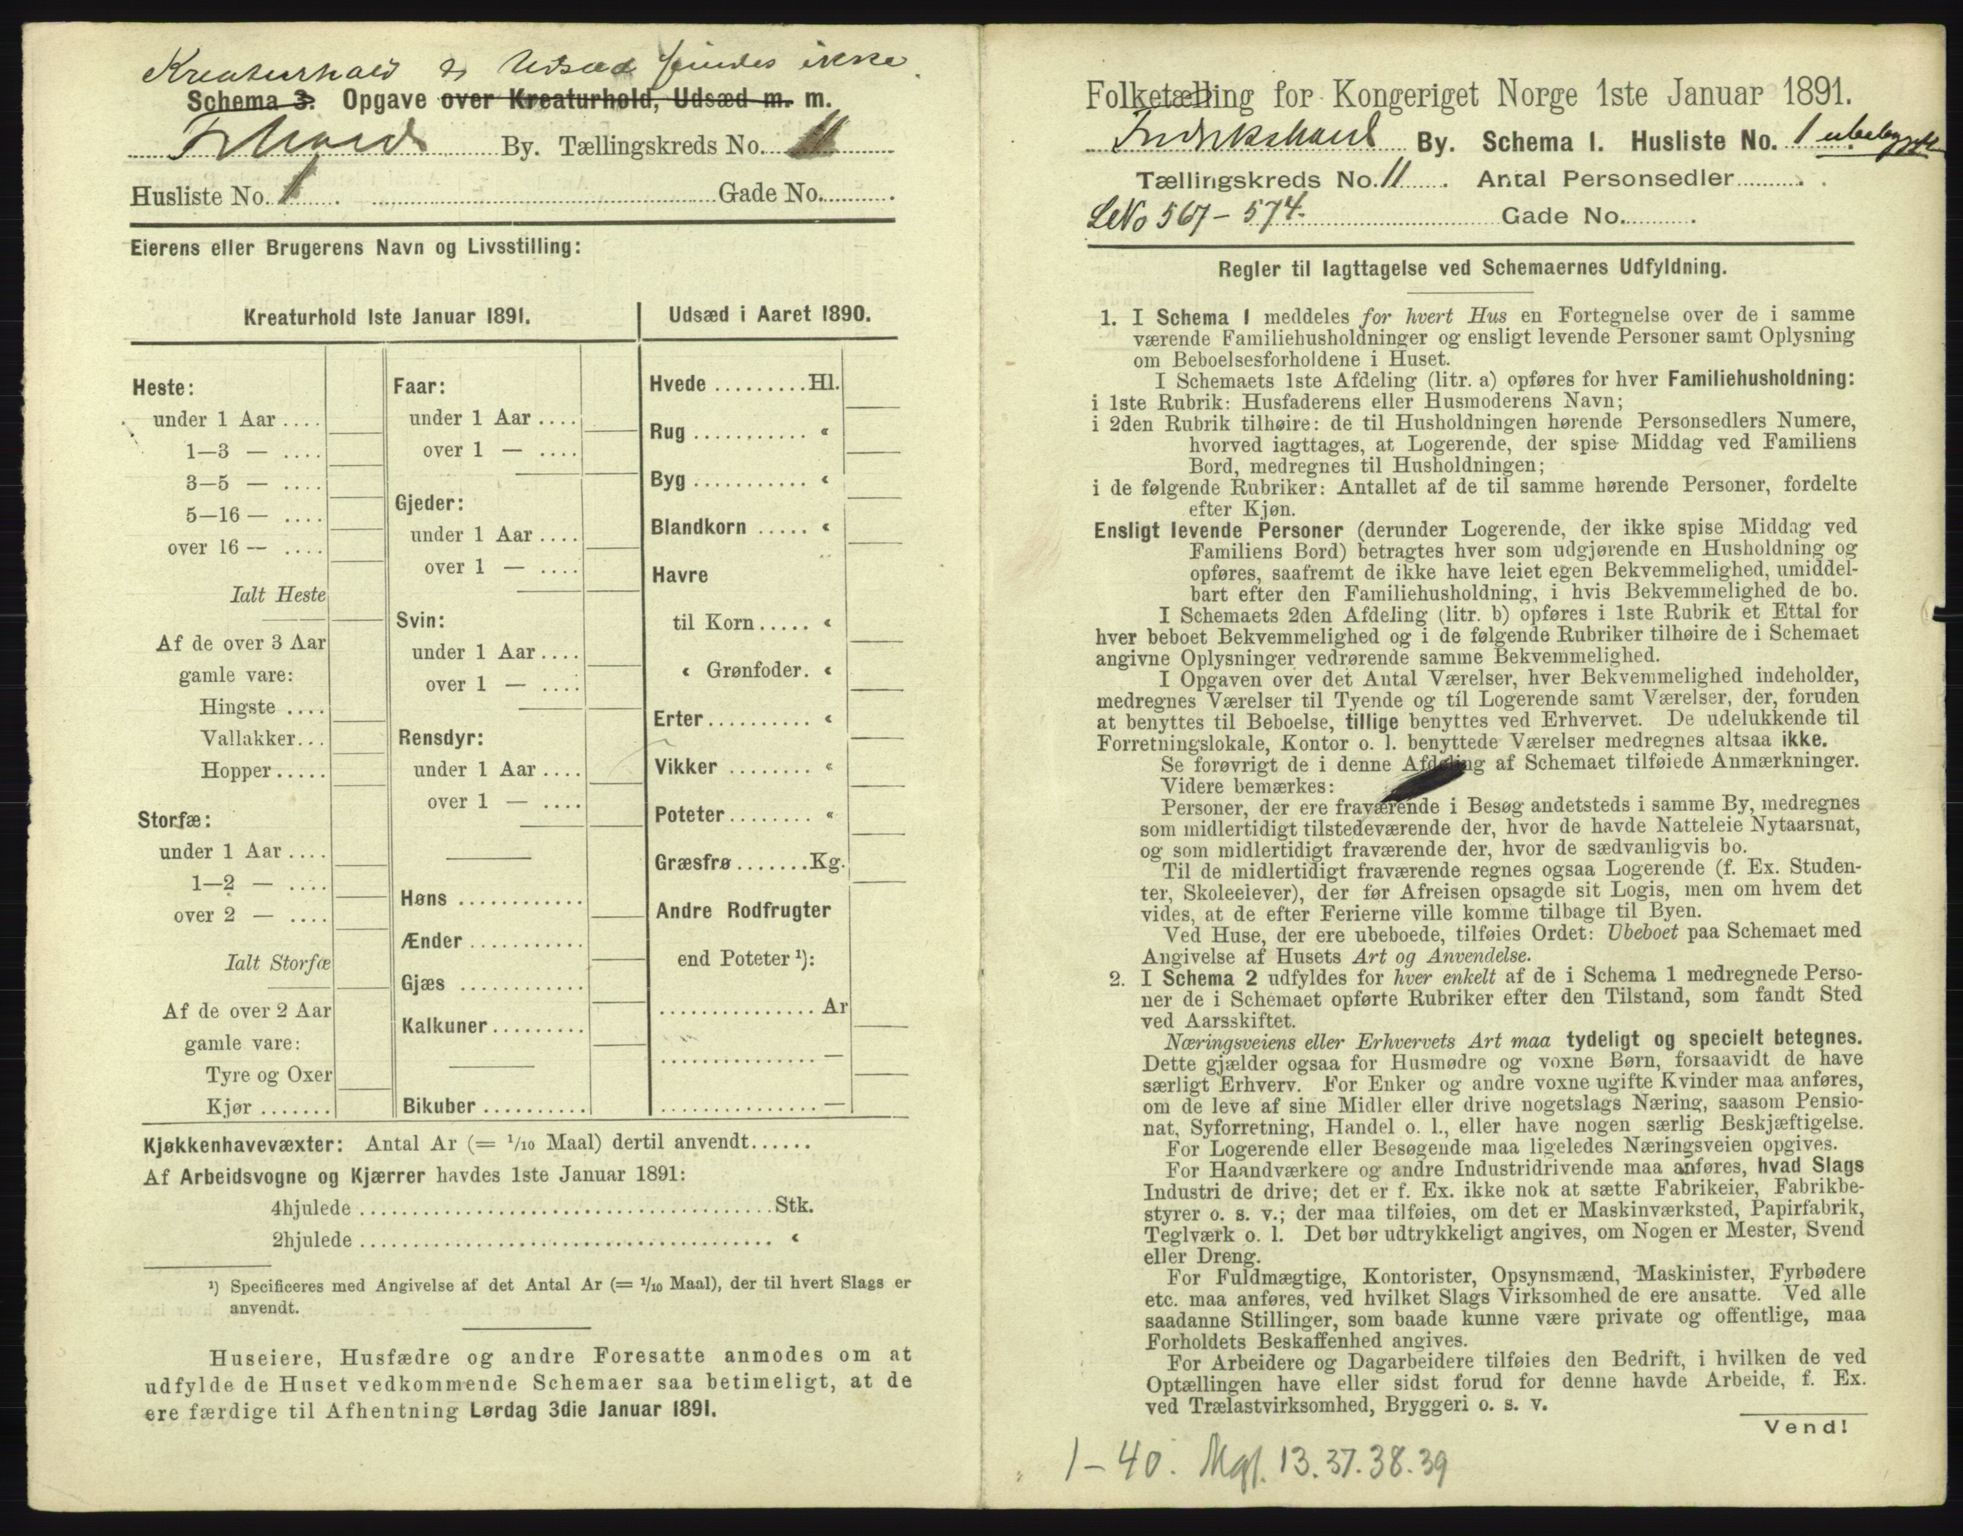 Kreaturhold & Udsæd findes ikke.
Schema 3. Opgave over Kreaturhold, Udsæd m. m.
Frhald By. Tællingskreds No. 11
Husliste No. 1. Gade No.
Eierens eller Brugerens Navn og Livsstilling:
Kreaturhold 1ste Januar 1891.
Heste:
under 1 Aar ....
1—3 — ....
3—5 — ....
5—16 — ....
over 16 — ....
Ialt Heste
Af de over 3 Aar
gamle vare:
Hingste ....
Vallakker...
Hopper.....
Storfæ:
under 1 Aar ....
1—2 — ....
over 2 — ....
Ialt Storfæ
Af de over 2 Aar
gamle vare:
Tyre og Oxer
Kjør .......
Faar:
under 1 Aar ....
over 1 — ....
Gjeder:
under 1 Aar ....
over 1 — ....
Svin:
under 1 Aar ....
over 1 — ....
Rensdyr:
under 1 Aar ....
over 1 — ....
Høns ............
Ænder ...........
Gjæs ............
Kalkuner.........
Bikuber ..........
Udsæd i Aaret 1890.
Hvede .........Hl.
Rug ........... «
Byg ........... «
Blandkorn ..... «
Havre
til Korn ..... «
« Grønfoder. «
Erter.......... «
Vikker ........ «
Poteter........ «
Græsfrø .......Kg.
Andre Rodfrugter
end Poteter ¹):
............... Ar
............... —
............... —
Kjøkkenhavevæxter: Antal Ar (= 1/10 Maal) dertil anvendt......
Af Arbeidsvogne og Kjærrer havdes 1ste Januar 1891:
4hjulede ........................................Stk.
2hjulede ........................................ «
¹) Specificeres med Angivelse af det Antal Ar (= 1/10 Maal), der til hvert Slags er
anvendt.
Huseiere, Husfædre og andre Foresatte anmodes om at
udfylde de Huset vedkommende Schemaer saa betimeligt, at de
ere færdige til Afhentning Lørdag 3die Januar 1891.
Folketælling for Kongeriget Norge 1ste Januar 1891.
Fredrikshald By. Schema 1. Husliste No. 1 ubebygget
Tællingskreds No. 11. Antal Personsedler
LNo 567-574. Gade No.
Regler til Iagttagelse ved Schemaernes Udfyldning.
1. I Schema 1 meddeles for hvert Hus en Fortegnelse over de i samme
værende Familiehusholdninger og ensligt levende Personer samt Oplysning
om Beboelsesforholdene i Huset.
I Schemaets 1ste Afdeling (litr. a) opføres for hver Familiehusholdning:
i 1ste Rubrik: Husfaderens eller Husmoderens Navn;
i 2den Rubrik tilhøire: de til Husholdningen hørende Personsedlers Numere,
hvorved iagttages, at Logerende, der spise Middag ved Familiens
Bord, medregnes til Husholdningen;
i de følgende Rubriker: Antallet af de til samme hørende Personer, fordelte
efter Kjøn.
Ensligt levende Personer (derunder Logerende, der ikke spise Middag ved
Familiens Bord) betragtes hver som udgjørende en Husholdning og
opføres, saafremt de ikke have leiet egen Bekvemmelighed, umiddel-
bart efter den Familiehusholdning, i hvis Bekvemmelighed de bo.
I Schemaets 2den Afdeling (litr. b) opføres i 1ste Rubrik et Ettal for
hver beboet Bekvemmelighed og i de følgende Rubriker tilhøire de i Schemaet
angivne Oplysninger vedrørende samme Bekvemmelighed.
I Opgaven over det Antal Værelser, hver Bekvemmelighed indeholder,
medregnes Værelser til Tyende og til Logerende samt Værelser, der, foruden
at benyttes til Beboelse, tillige benyttes ved Erhvervet. De udelukkende til
Forretningslokale, Kontor o. l. benyttede Værelser medregnes altsaa ikke.
Se forøvrigt de i denne Afdeling af Schemaet tilføiede Anmærkninger.
Videre bemærkes:
Personer, der ere fraværende i Besøg andetsteds i samme By, medregnes
som midlertidigt tilstedeværende der, hvor de havde Natteleie Nytaarsnat,
og som midlertidigt fraværende der, hvor de sædvanligvis bo.
Til de midlertidigt fraværende regnes ogsaa Logerende (f. Ex. Studen-
ter, Skoleelever), der før Afreisen opsagde sit Logis, men om hvem det
vides, at de efter Ferierne ville komme tilbage til Byen.
Ved Huse, der ere ubeboede, tilføies Ordet: Ubeboet paa Schemaet med
Angivelse af Husets Art og Anvendelse.
2. I Schema 2 udfyldes for hver enkelt af de i Schema 1 medregnede Perso-
ner de i Schemaet opførte Rubriker efter den Tilstand, som fandt Sted
ved Aarsskiftet.
Næringsveiens eller Erhvervets Art maa tydeligt og specielt betegnes.
Dette gjælder ogsaa for Husmødre og voxne Børn, forsaavidt de have
særligt Erhverv. For Enker og andre voxne ugifte Kvinder maa anføres,
om de leve af sine Midler eller drive nogetslags Næring, saasom Pensio-
nat, Syforretning, Handel o. l., eller have nogen særlig Beskjæftigelse.
For Logerende eller Besøgende maa ligeledes Næringsveien opgives.
For Haandværkere og andre Industridrivende maa anføres, hvad Slags
Industri de drive; det er f. Ex. ikke nok at sætte Fabrikeier, Fabrikbe-
styrer o. s. v.; der maa tilføies, om det er Maskinværksted, Papirfabrik,
Teglværk o. l. Det bør udtrykkeligt angives, om Nogen er Mester, Svend
eller Dreng.
For Fuldmægtige, Kontorister, Opsynsmænd, Maskinister, Fyrbødere
etc. maa anføres, ved hvilket Slags Virksomhed de ere ansatte. Ved alle
saadanne Stillinger, som baade kunne være private og offentlige, maa
Forholdets Beskaffenhed angives.
For Arbeidere og Dagarbeidere tilføies den Bedrift, i hvilken de ved
Optællingen have eller sidst forud for denne havde Arbeide, f. Ex.
ved Trælastvirksomhed, Bryggeri o. s. v.
Vend!
1-40. Mgl. 13.37.38.39